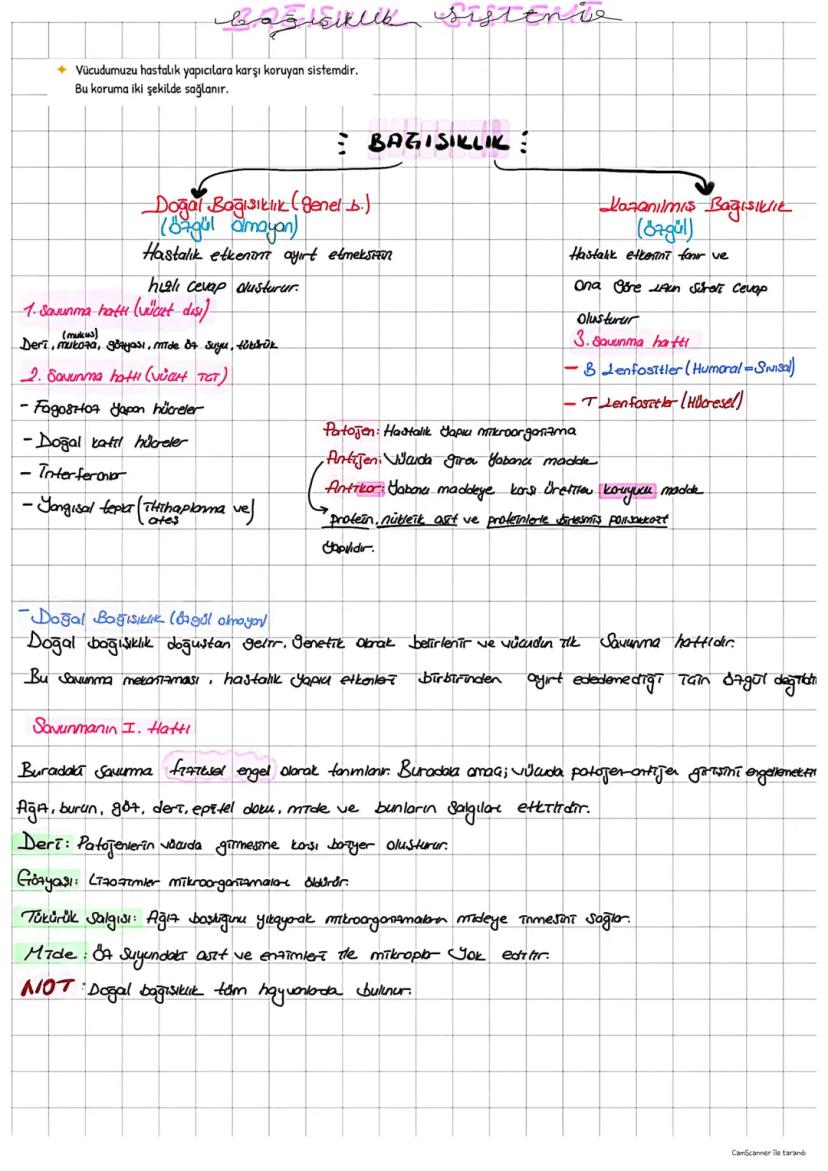 BAĞIŞIKLIK SİSTEMİ
Bağışıklık Sistemi
Vücudumuzu hastalık yapıcılara karşı koruyan sistemdir.
Bu koruma iki şekilde sağlanır.
BAĞIŞIKLIK
Doğal Bağışıklık (Genel b.)
(Özgül olmayan)
Hastalık etkenini ayırt etmeksizin
hızlı cevap oluşturur.
1. Savunma hattı (vücut dışı)
(mukus)
Deri, mukoza, gözyaşı, mide öz suyu, tükürük
2. Savunma hattı (vücut içi)
- Fagositoz yapan hücreler
- Doğal katil hücreler
- İnterferonlar
- Yangısal tepki (İltihaplanma ve
ateş)
Kazanılmış Bağışıklık
(özgül)
Hastalık etkenini tanır ve
ona göre uzun süreli cevap
oluşturur
3. Savunma hattı
- B Lenfositler (Humoral = Sıvısal)
- T Lenfositler (Hücresel)
Patojen: Hastalık yapıcı mikroorganizma
Antijen: Vücuda giren yabancı madde
Antikor: Yabancı maddeye karşı üretilen koruyucu madde
protein, nükleik asit ve proteinlerle birleşmiş polisakkarit
yapılıdır.
- Doğal Bağışıklık (özgül olmayan)
Doğal bağışıklık doğuştan gelir, genetik olarak belirlenir ve vücudun ilk savunma hattıdır.
Bu savunma mekanizması, hastalık yapıcı etkenleri birbirinden ayırt edemediği için özgül değildir
Savunmanın I. Hattı
Buradaki savunma fiziksel engel olarak tanımlanır. Buradaki amaç; vücuda patojen-antijen girişini engellemektir
Ağız, burun, göz, deri, epitel doku, mide ve bunların salgıları etkilidir.
Deri: Patojenlerin vücuda girmesine karşı bariyer oluşturur.
Gözyaşı: Lizozimler mikroorganizmaları öldürür.
Tükürük Salgısı: Ağız boşluğunu yıkayarak mikroorganizmaların mideye inmesini sağlar.
Mide: Öz suyundaki asit ve enzimleri ile mikroplar yok edilir.
NOT: Doğal bağışıklık tüm hayvanlarda bulunur.
CamScanner ile tarandı